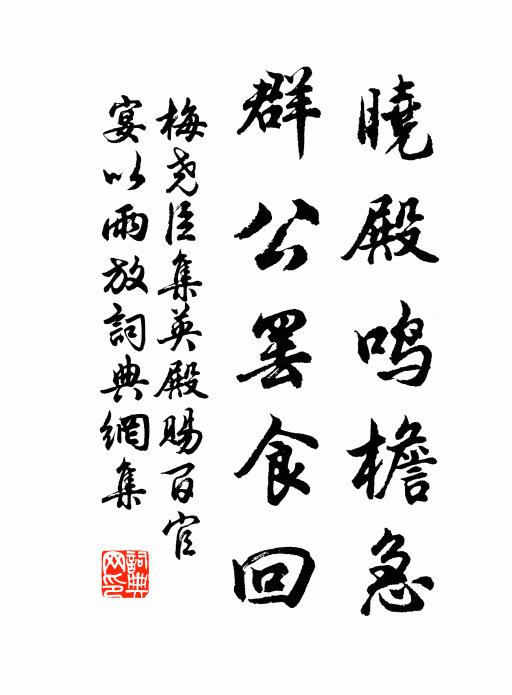 曉殿鳴檐急
群公罢食回
梅堯臣集英殿賜百官
宴以雨放詞典網集
詞典
网印